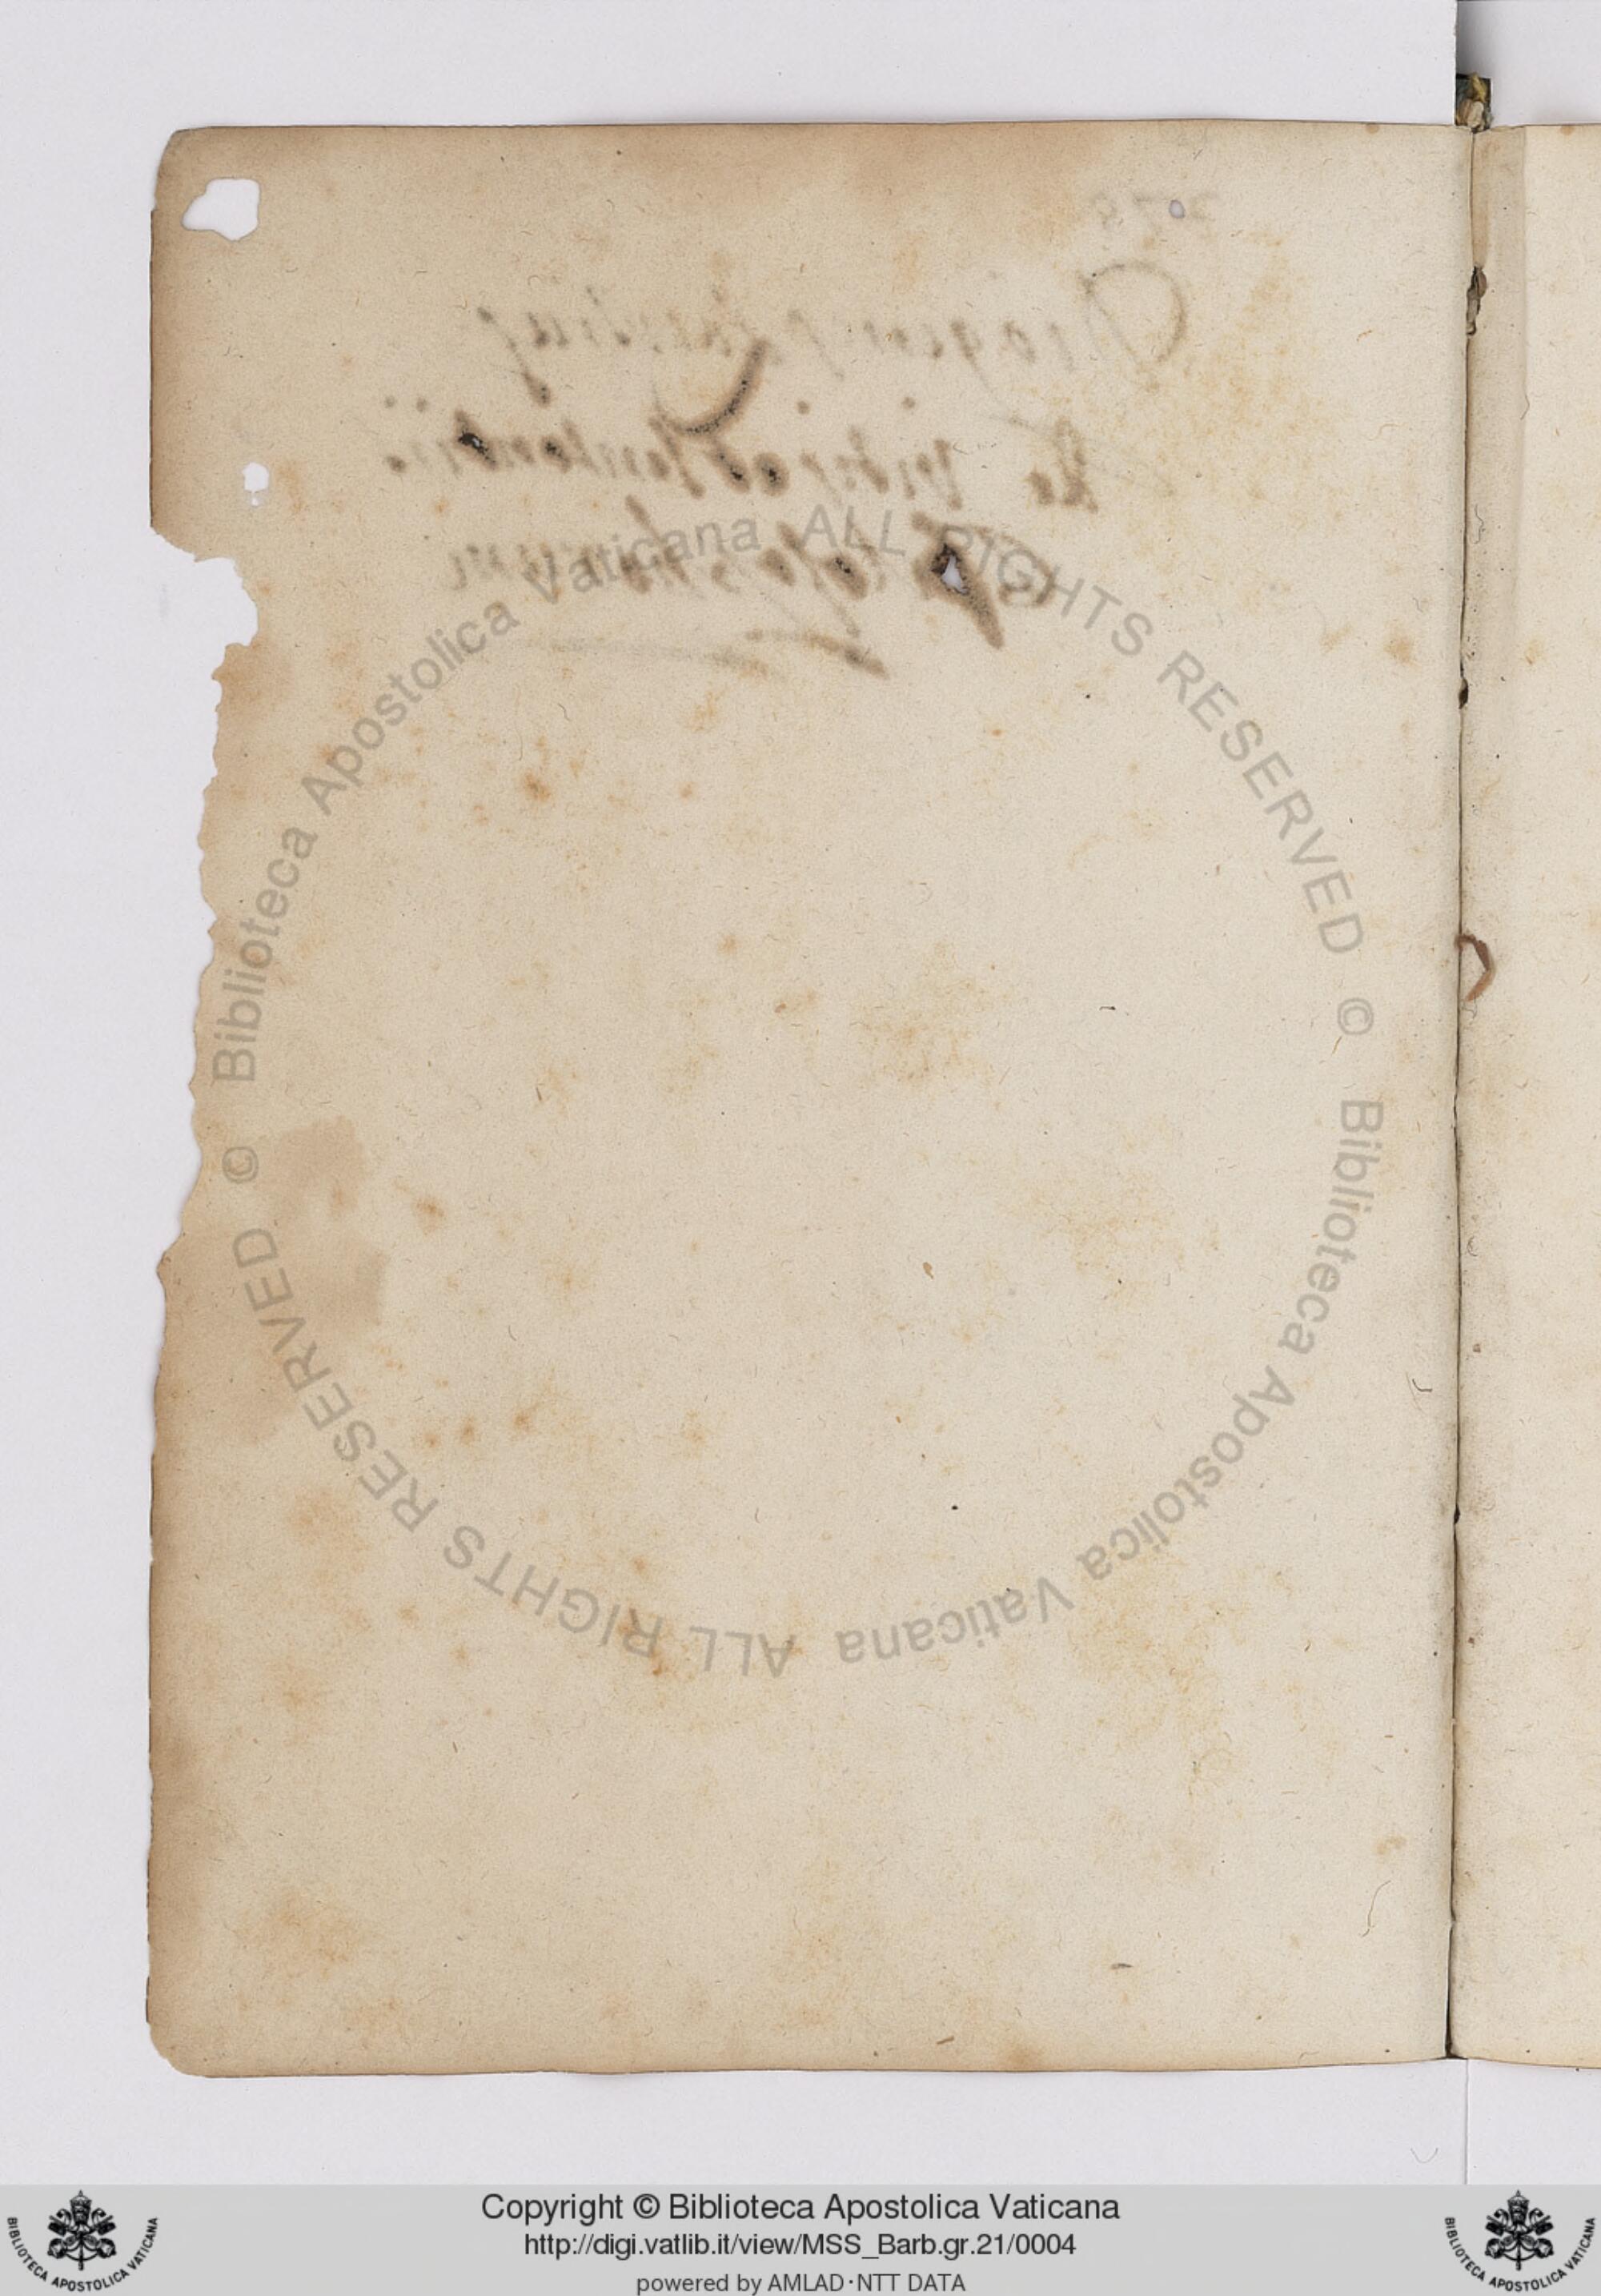 Diogenes Laertius
de vitis et sententiis
philosophorum
© Biblioteca Apostolica Vaticana ALL RIGHTS RESERVED © Biblioteca Apostolica Vaticana ALL RIGHTS RESERVED
Copyright © Biblioteca Apostolica Vaticana
http://digi.vatlib.it/view/MSS_Barb.gr.21/0004
powered by AMLAD·NTT DATA
BIBLIOTECA APOSTOLICA VATICANA
BIBLIOTECA APOSTOLICA VATICANA